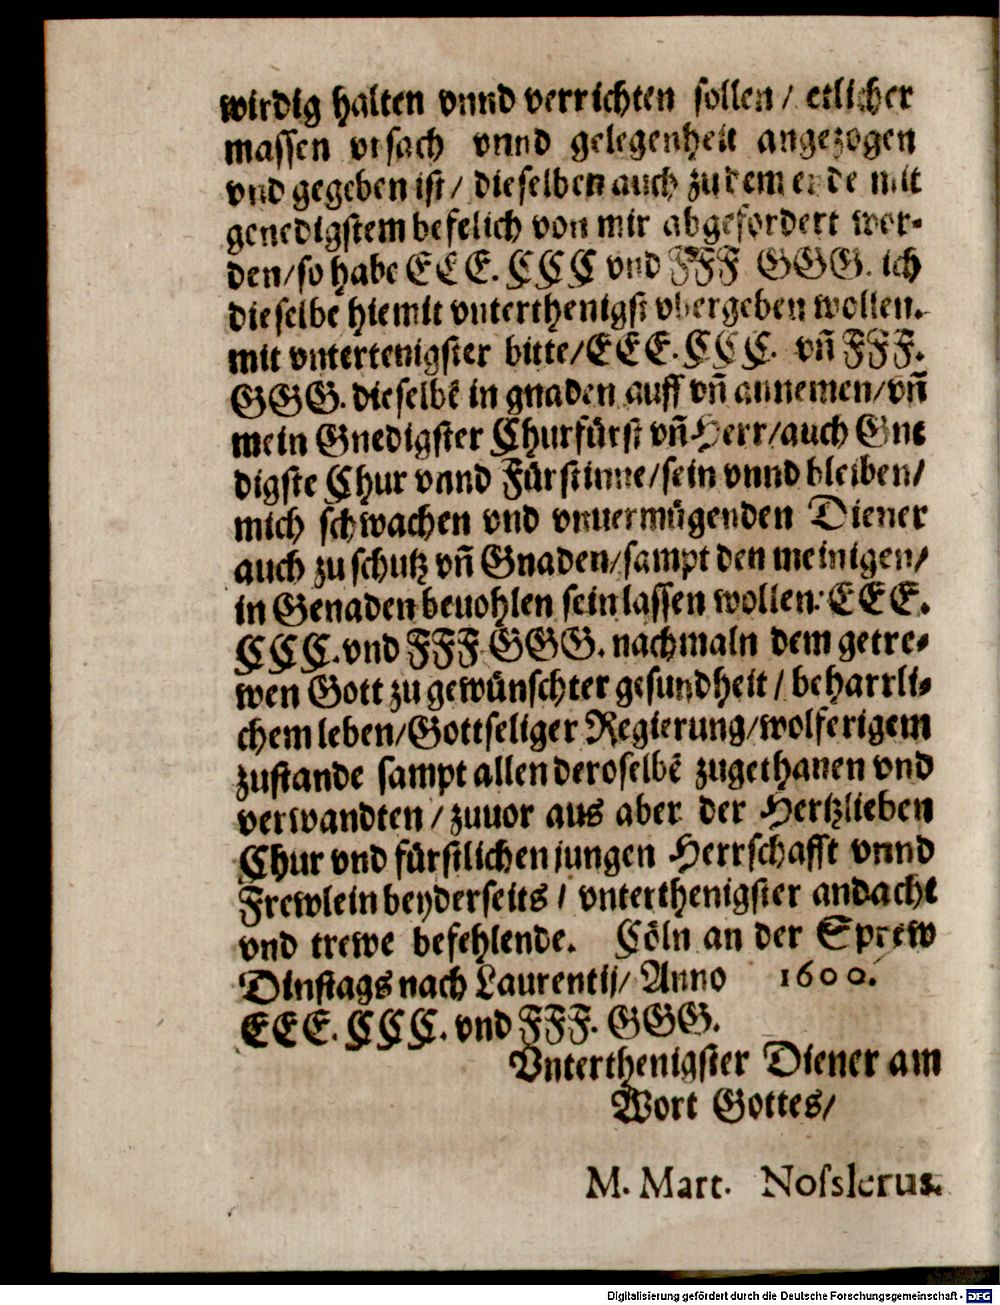 wirdig halten vnnd verrichten sollen / etlicher
massen vrsach vnnd gelegenheit angezogen
vnd gegeben ist / dieselben auch zu dem ende mit
genedigstem befelich von mir abgefordert wor-
den/so habe EEE. CCC vnd FFF GGG. ich
dieselbe hiemit vnterthenigst vbergeben wollen.
mit vntertenigster bitte/EEE. CCC. vñ FFF.
GGG. dieselbẽ in gnaden auff vñ annemen/vñ
mein Gnedigster Churfürst vñ Herr/auch Gne
digste Chur vnnd Fürstinne/sein vnnd bleiben/
mich schwachen vnd vnuermügenden Diener
auch zu schutz vñ Gnaden/sampt den meinigen/
in Genaden beuohlen sein lassen wollen: EEE.
CCC. vnd FFF GGG. nachmaln dem getre-
wen Gott zu gewünschter gesundheit / beharrli-
chem leben/Gottseliger Regierung/wolferigem
zustande sampt allen deroselbẽ zugethanen vnd
verwandten / zuuor aus aber der Hertzlieben
Chur vnd fürstlichen jungen Herrschafft vnnd
Frewlein beyderseits / vnterthenigster andacht
vnd trewe befehlende. Cöln an der Sprew
Dinstags nach Laurentij/ Anno 1600.
EEE. CCC. vnd FFF. GGG.
Vnterthenigster Diener am
Wort Gottes/
M. Mart. Nosslerus.
Digitalisierung gefördert durch die Deutsche Forschungsgemeinschaft - DFG